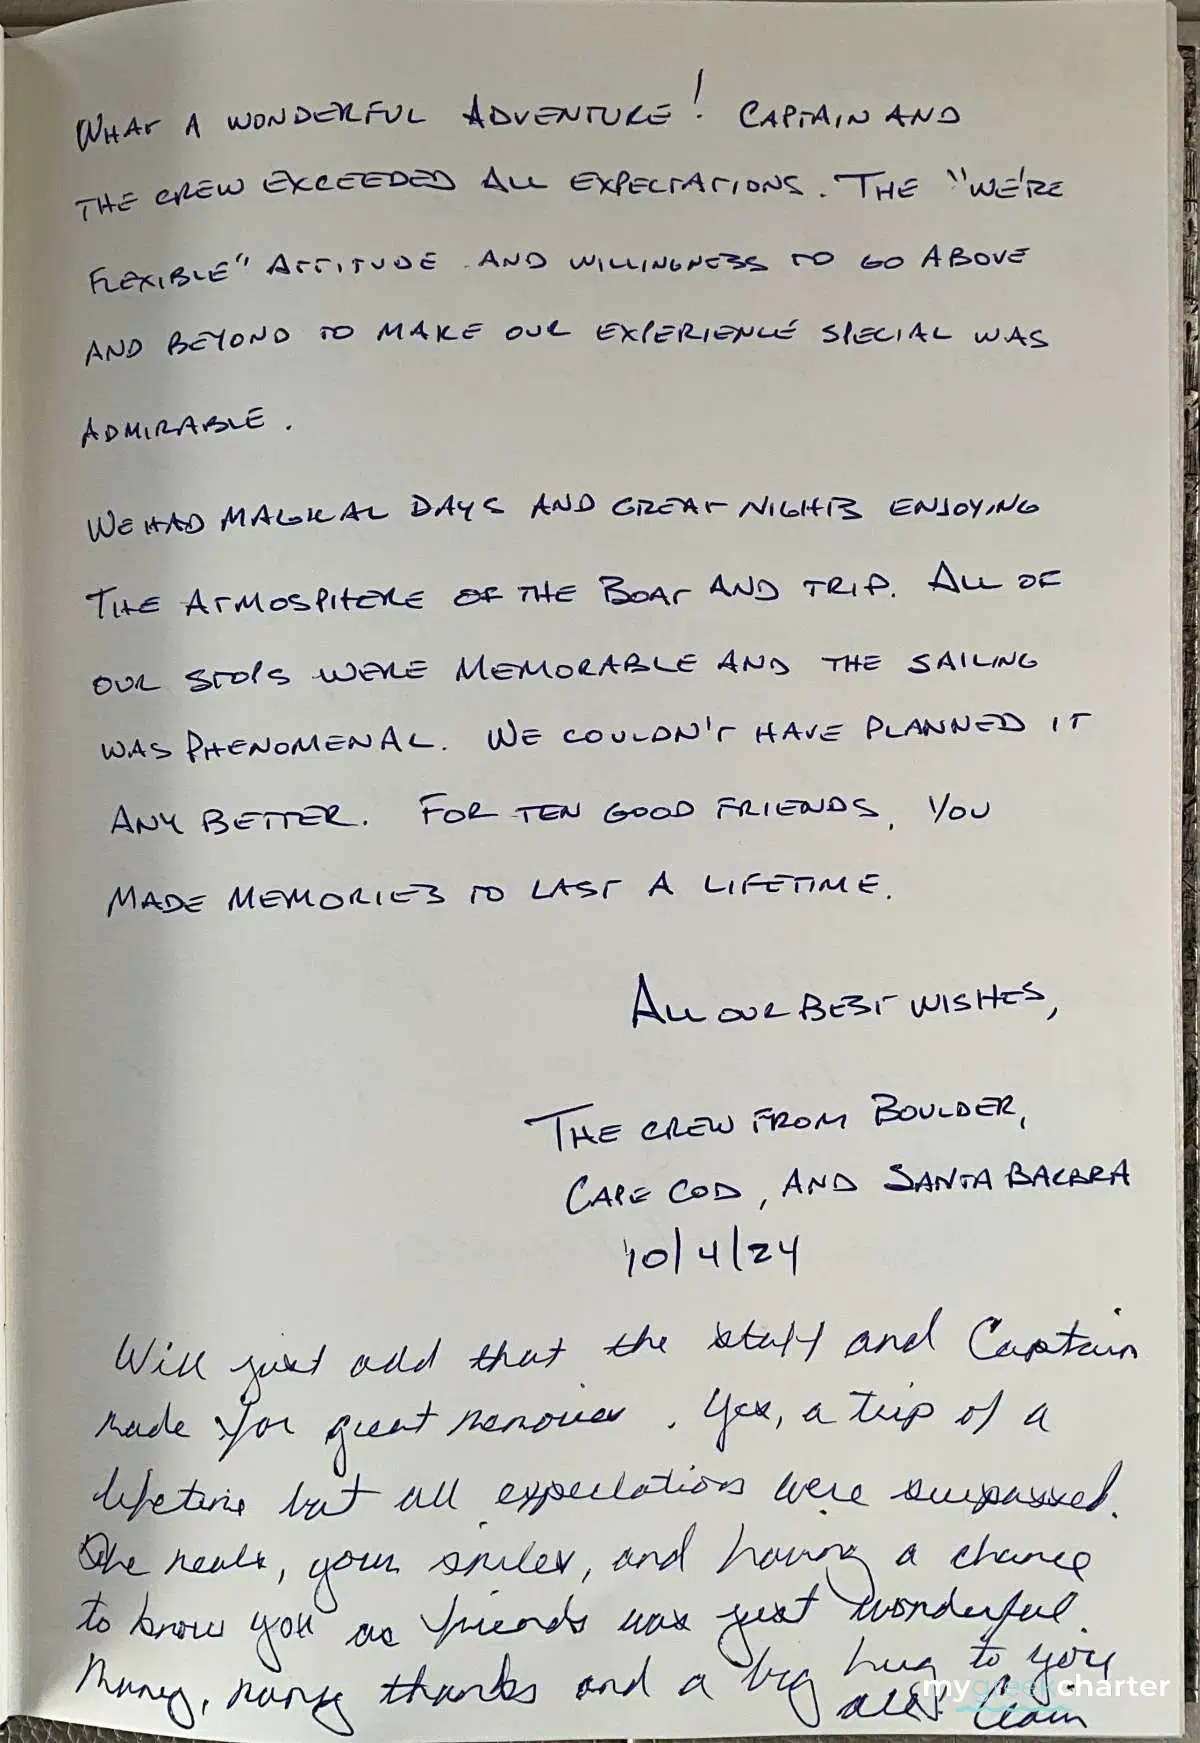 WHAT A WONDERFUL ADVENTURE! CAPTAIN AND
THE CREW EXCEEDED ALL EXPECTATIONS. THE "WE'RE
FLEXIBLE" ATTITUDE AND WILLINGNESS TO GO ABOVE
AND BEYOND TO MAKE OUR EXPERIENCE SPECIAL WAS
ADMIRABLE.
WE HAD MAGICAL DAYS AND GREAT NIGHTS ENJOYING
THE ATMOSPHERE OF THE BOAT AND TRIP. ALL OF
OUR STOPS WERE MEMORABLE AND THE SAILING
WAS PHENOMENAL. WE COULDN'T HAVE PLANNED IT
ANY BETTER. FOR TEN GOOD FRIENDS, YOU
MADE MEMORIES TO LAST A LIFETIME.
ALL OUR BEST WISHES,
THE CREW FROM BOULDER,
CAPE COD, AND SANTA BARBARA
10/4/24
Will just add that the staff and Captain
made for great memories. Yes, a trip of a
lifetime but all expectations were surpassed.
The meals, your smiles, and having a chance
to know you as friends was just wonderful.
Many, many thanks and a big hug to you
all!
mygreekcharter